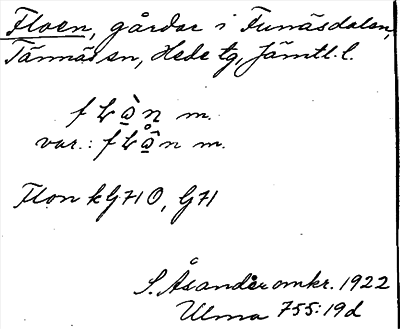 Floen, gårdar i Funäsdalen,
Tännäs sn, Hede tg, Jämtl. l.
m.
var.: m.
Flon kG71Ö, G71
S. Åsander omkr. 1922
Ulma 755:19d